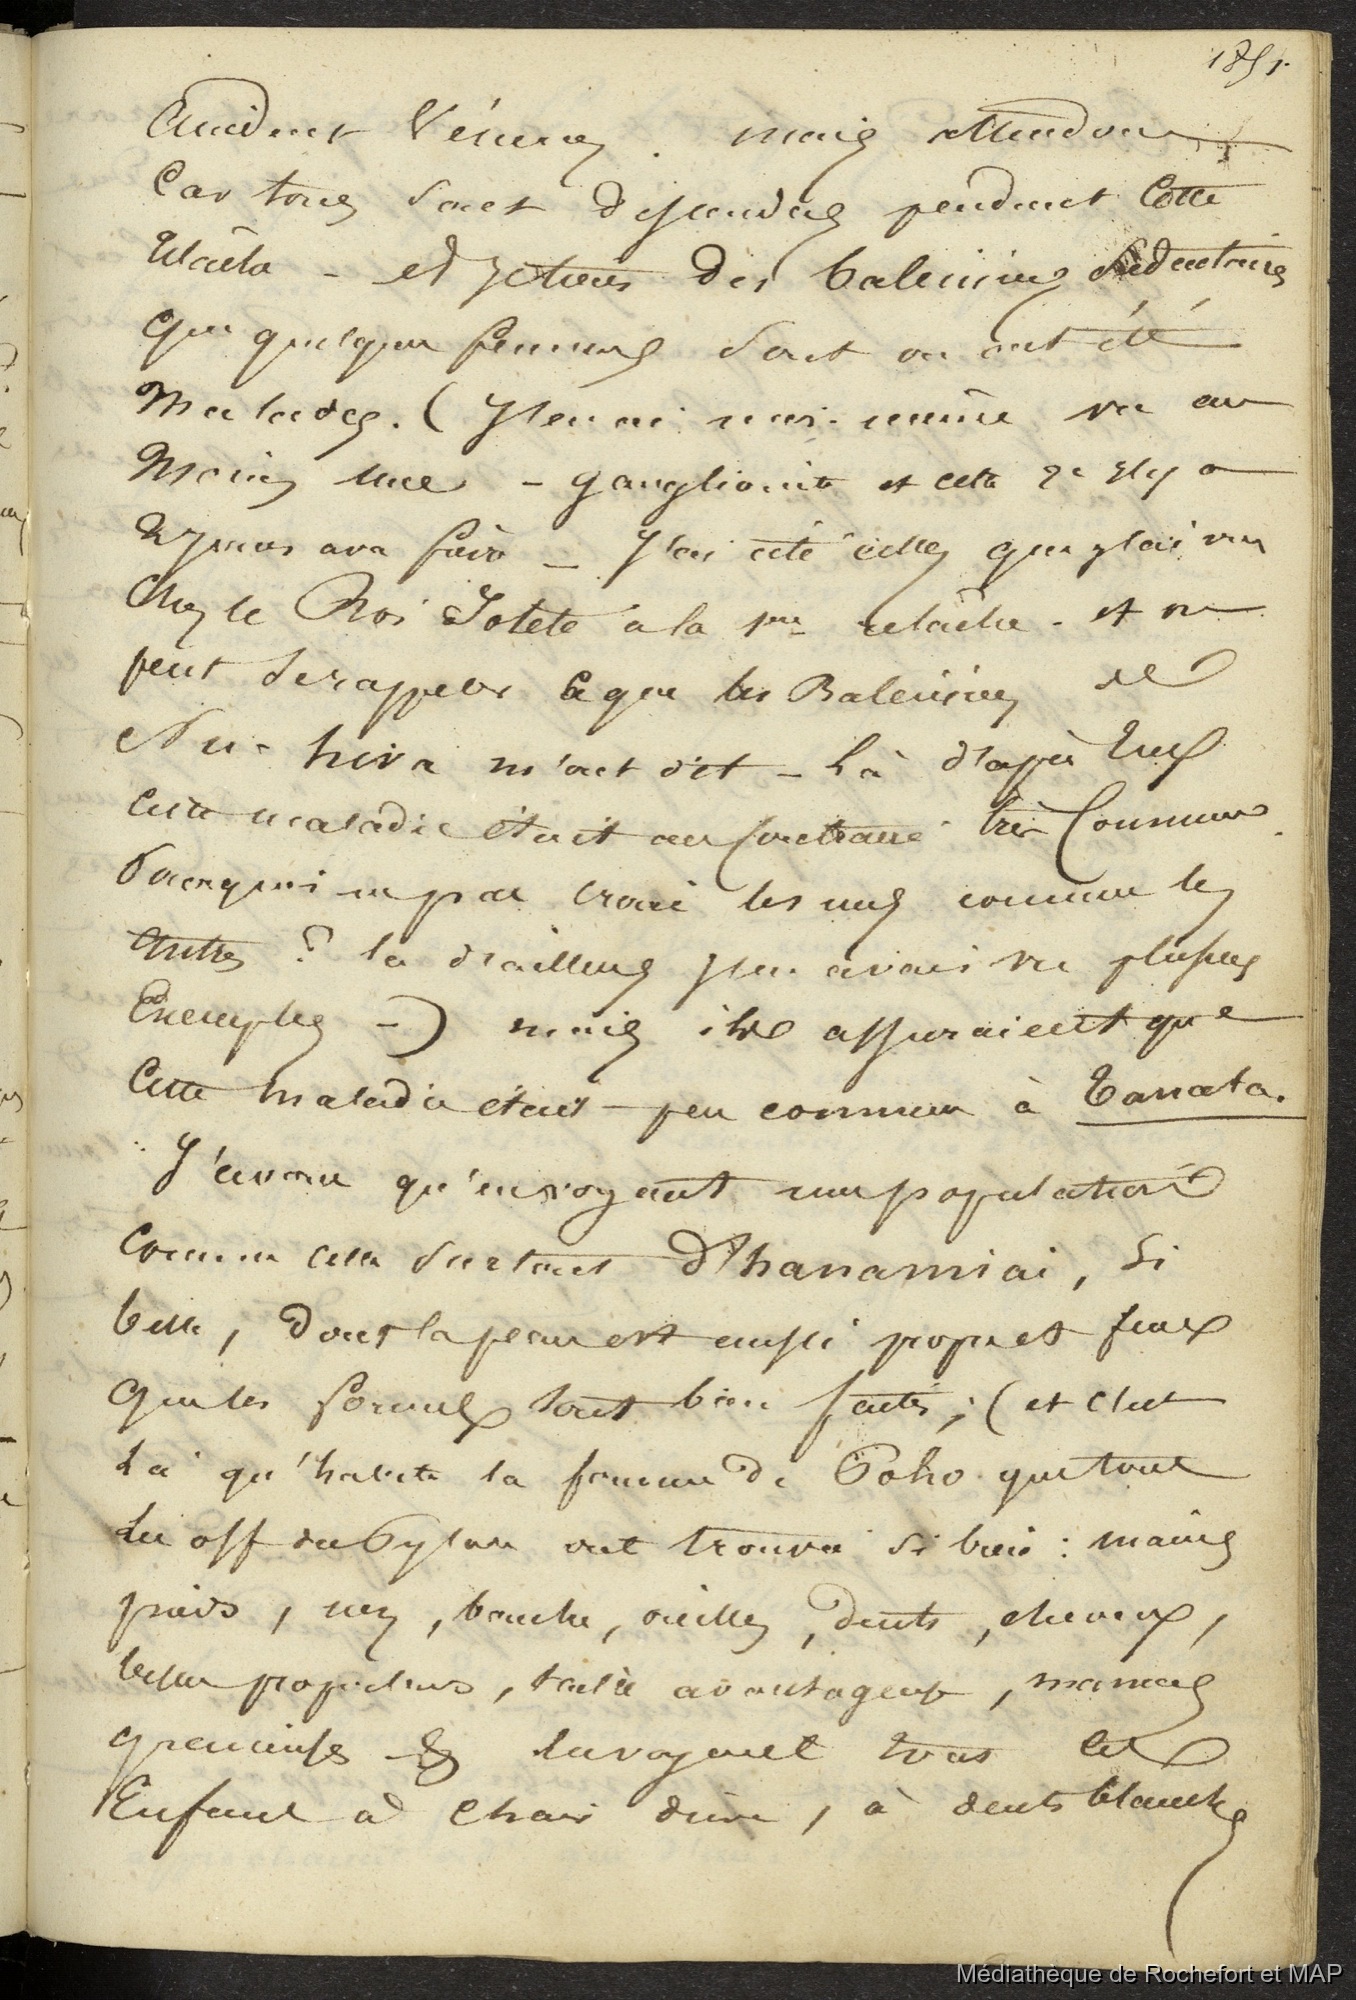 1851.
Accident Vénérien. mais attendons
Car tous sont descendus pendant Cette
Relâche - et je tiens des baleiniers Sédentaires
que quelques femmes sont ou ont été
Malades. (J'en ai moi-même vu au
Moins une - ganglionite et cela il y a
J'ai cité celles que j'ai vu
Chez le Roi Jotété à la 1ère relâche. et on
peut se rappeler ce que les Baleiniers de
Nu-hiva m'ont dit - Là d'après Eux
cette maladie était au contraire très Commune.
Pourquoi ne pas croire les uns comme les
Autres ? là d'ailleurs j'en avais vu plusieurs
Exemples -) mais ils assuraient que
Cette maladie était peu commune à Taouata.
J'avoue qu'en voyant une population
Comme celle surtout d'hanamiai, si
belle, dont la peau est aussi propre et
que les formes sont bien faites; (et c'est
Là qu'habite la femme de Poho que tous
les off du Pylade ont trouvé si bien : mains
pieds, nez, bouche, oreilles, dents, cheveux,
belles proportions, taille avantageuse, manières
gracieuses &) en voyant tous ces
Enfants à chair dure, à dents blanches
Médiathèque de Rochefort et MAP